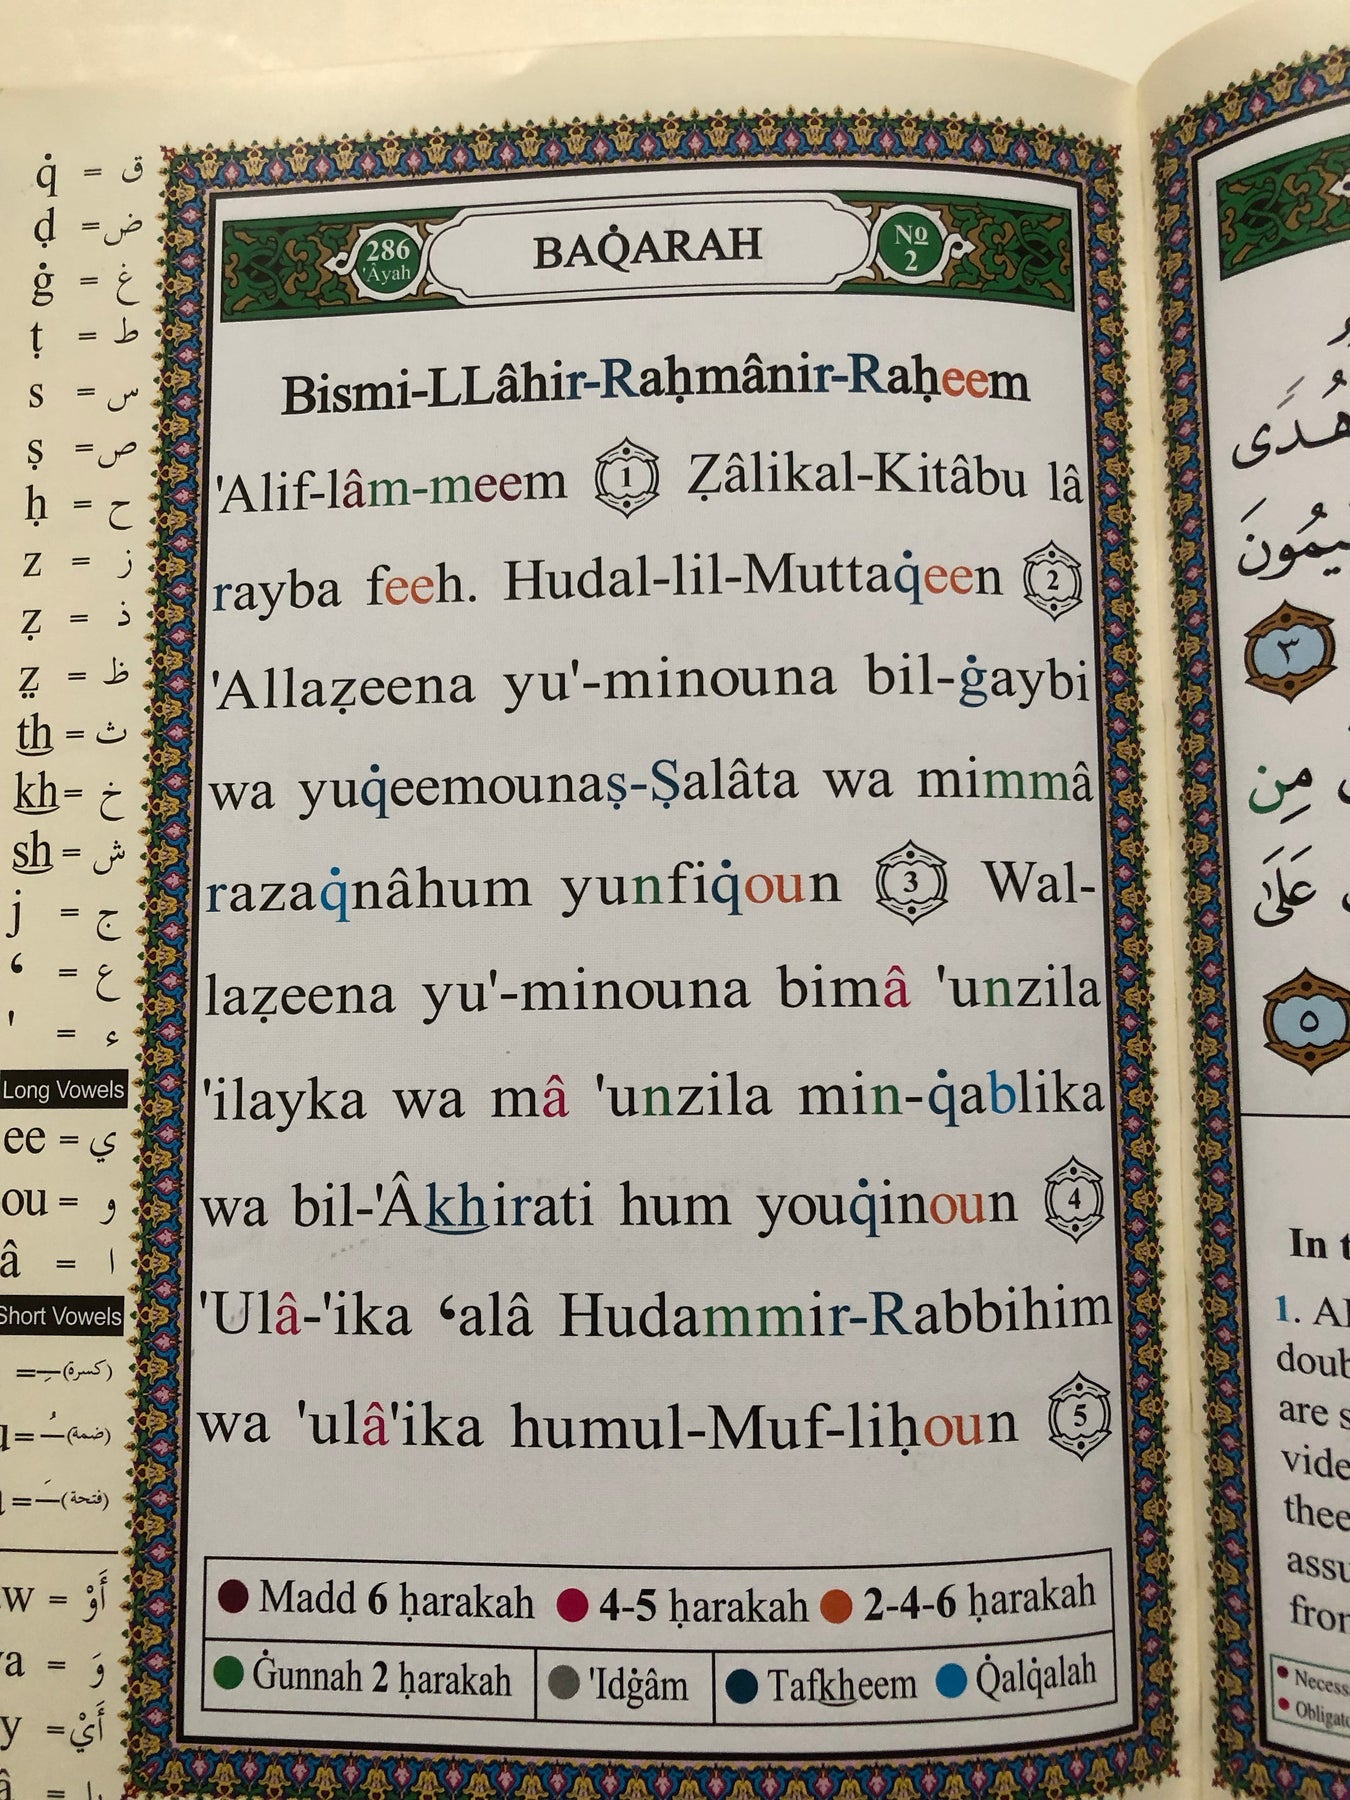 q̇ = ق
ḍ = ض
ġ = غ
ṭ = ط
s = س
ṣ = ص
ḥ = ح
z = ز
ẓ = ذ
ẓ̤ = ظ
th = ث
kh = خ
sh = ش
j = ج
‘ = ع
' = ء
Long Vowels
ee = ي
ou = و
â = ا
Short Vowels
= ـِ (كسرة)
= ـُ (ضمة)
= ـَ (فتحة)
w = أَوْ
= وَ
y = أَيْ
286
'Âyah
BAQ̇ARAH
No
2
Bismi-LLâhir-Raḥmânir-Raḥeem
'Alif-lâm-meem 1 Ẓâlikal-Kitâbu lâ
rayba feeh. Hudal-lil-Muttaq̇een 2
'Allaẓeena yu'-minouna bil-ġaybi
wa yuq̇eemounaṣ-Ṣalâta wa mimmâ
razaq̇nâhum yunfiq̇oun 3 Wal-
laẓeena yu'-minouna bimâ 'unzila
'ilayka wa mâ 'unzila min-q̇ablika
wa bil-'Âkhirati hum youq̇inoun 4
'Ulâ-'ika ‘alâ Hudammir-Rabbihim
wa 'ulâ'ika humul-Muf-liḥoun 5
Madd 6 ḥarakah 4-5 ḥarakah 2-4-6 ḥarakah
Ġunnah 2 ḥarakah 'Idġâm Tafkheem Q̇alq̇alah
هُدَى
٣
مِن
عَلَىٰ
٥
In
1.
doub
are s
vide
thee
assu
from
Necess
Obligat